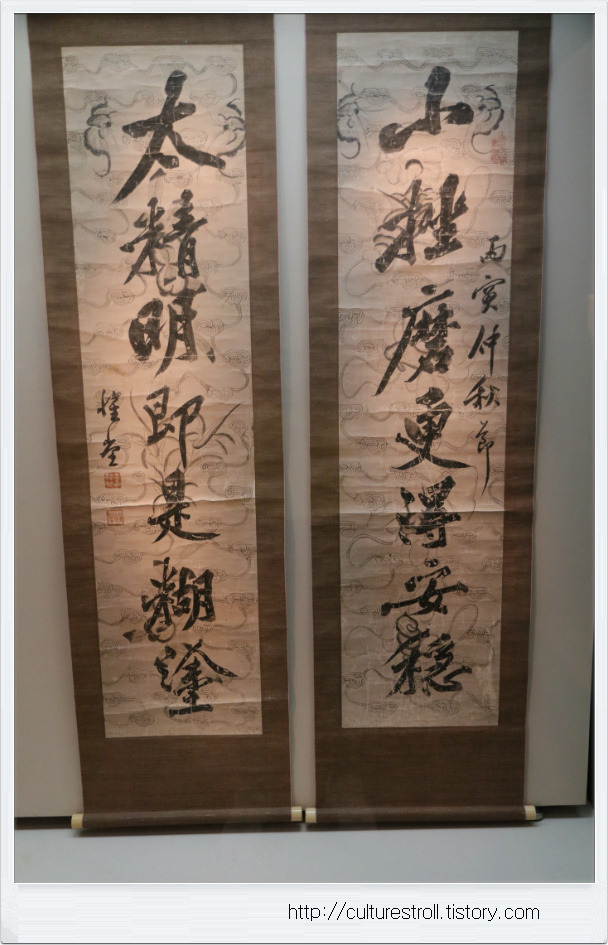 小挫磨更得妥穩
丙寅仲秋節
太精明即是糊塗
堂
http://culturestroll.tistory.com